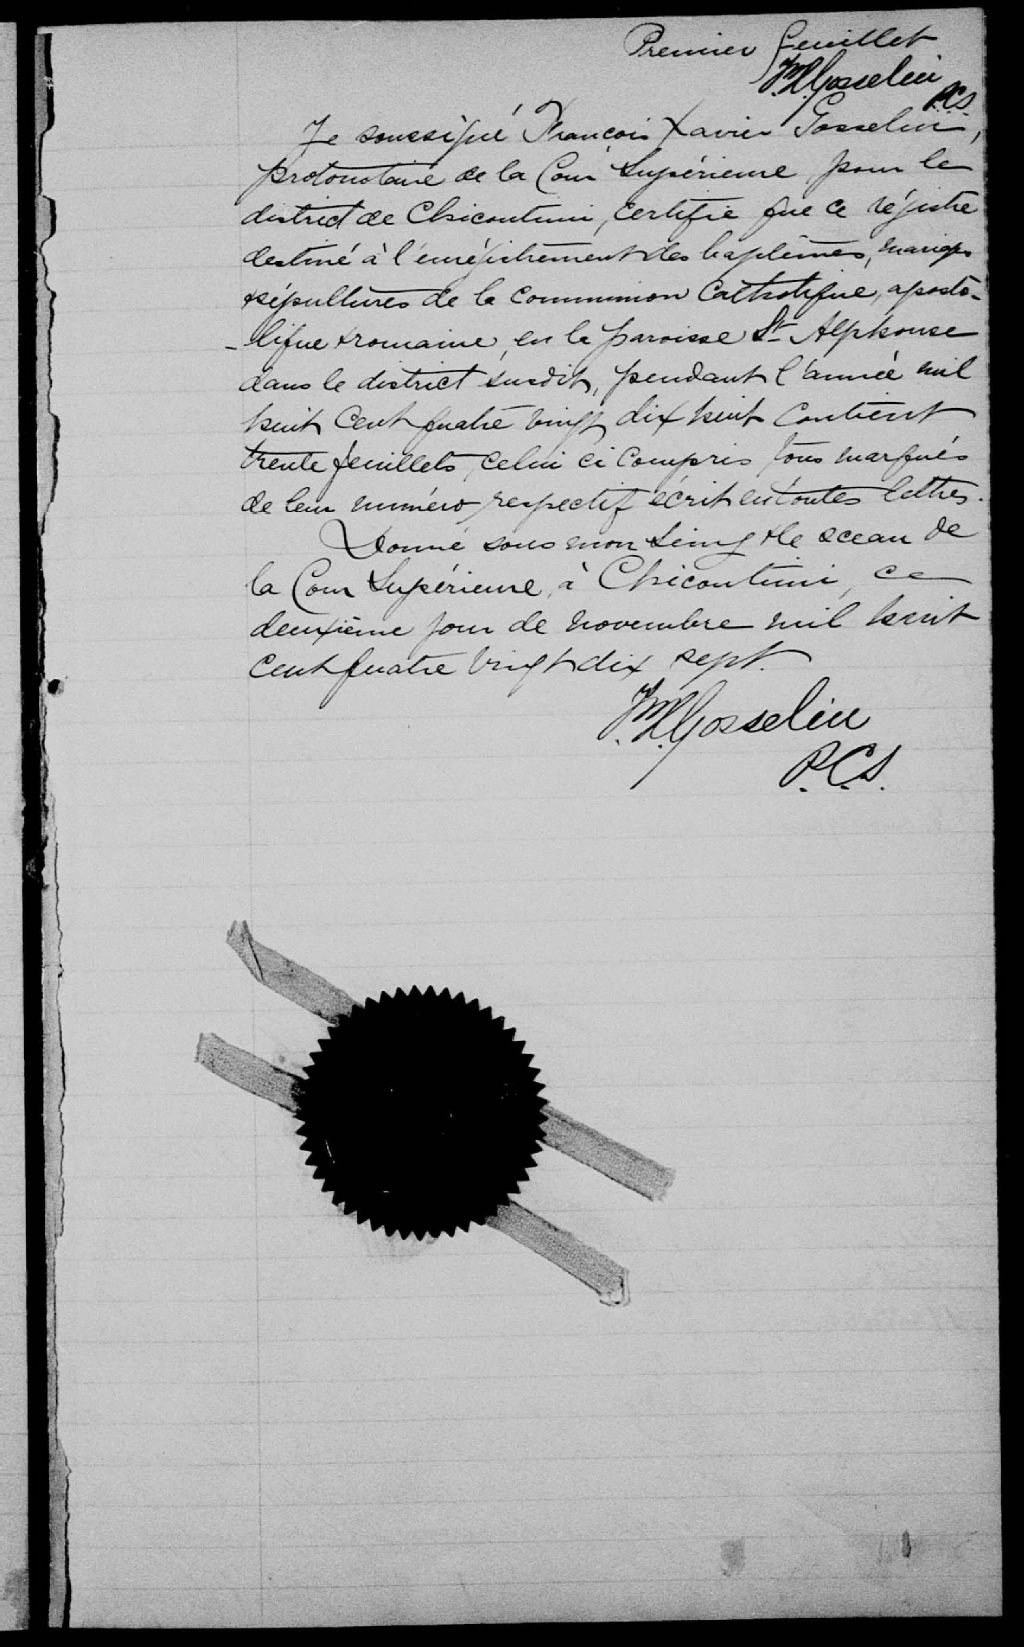 Premier feuillet
F.X. Gosselin
P.C.S.
Je soussigné François Xavier Gosselin,
protonotaire de la Cour Supérieure, pour le
district de Chicoutimi, certifie que ce régistre
destiné à l'enrégistrement des baptêmes, mariages
& sépultures de la Communion Catholique, aposto-
-lique & romaine, en la paroisse St Alphonse
dans le district susdit, pendant l'année mil
huit cent quatre vingt dix huit contient
trente feuillets, celui ci compris, tous marqués
de leur numéro respectif écrit en toutes lettres.
Donné sous mon seing & le sceau de
la Cour Supérieure, à Chicoutimi, ce
deuxième jour de novembre mil huit
cent quatre vingt dix sept.
F.X. Gosselin
P.C.S.